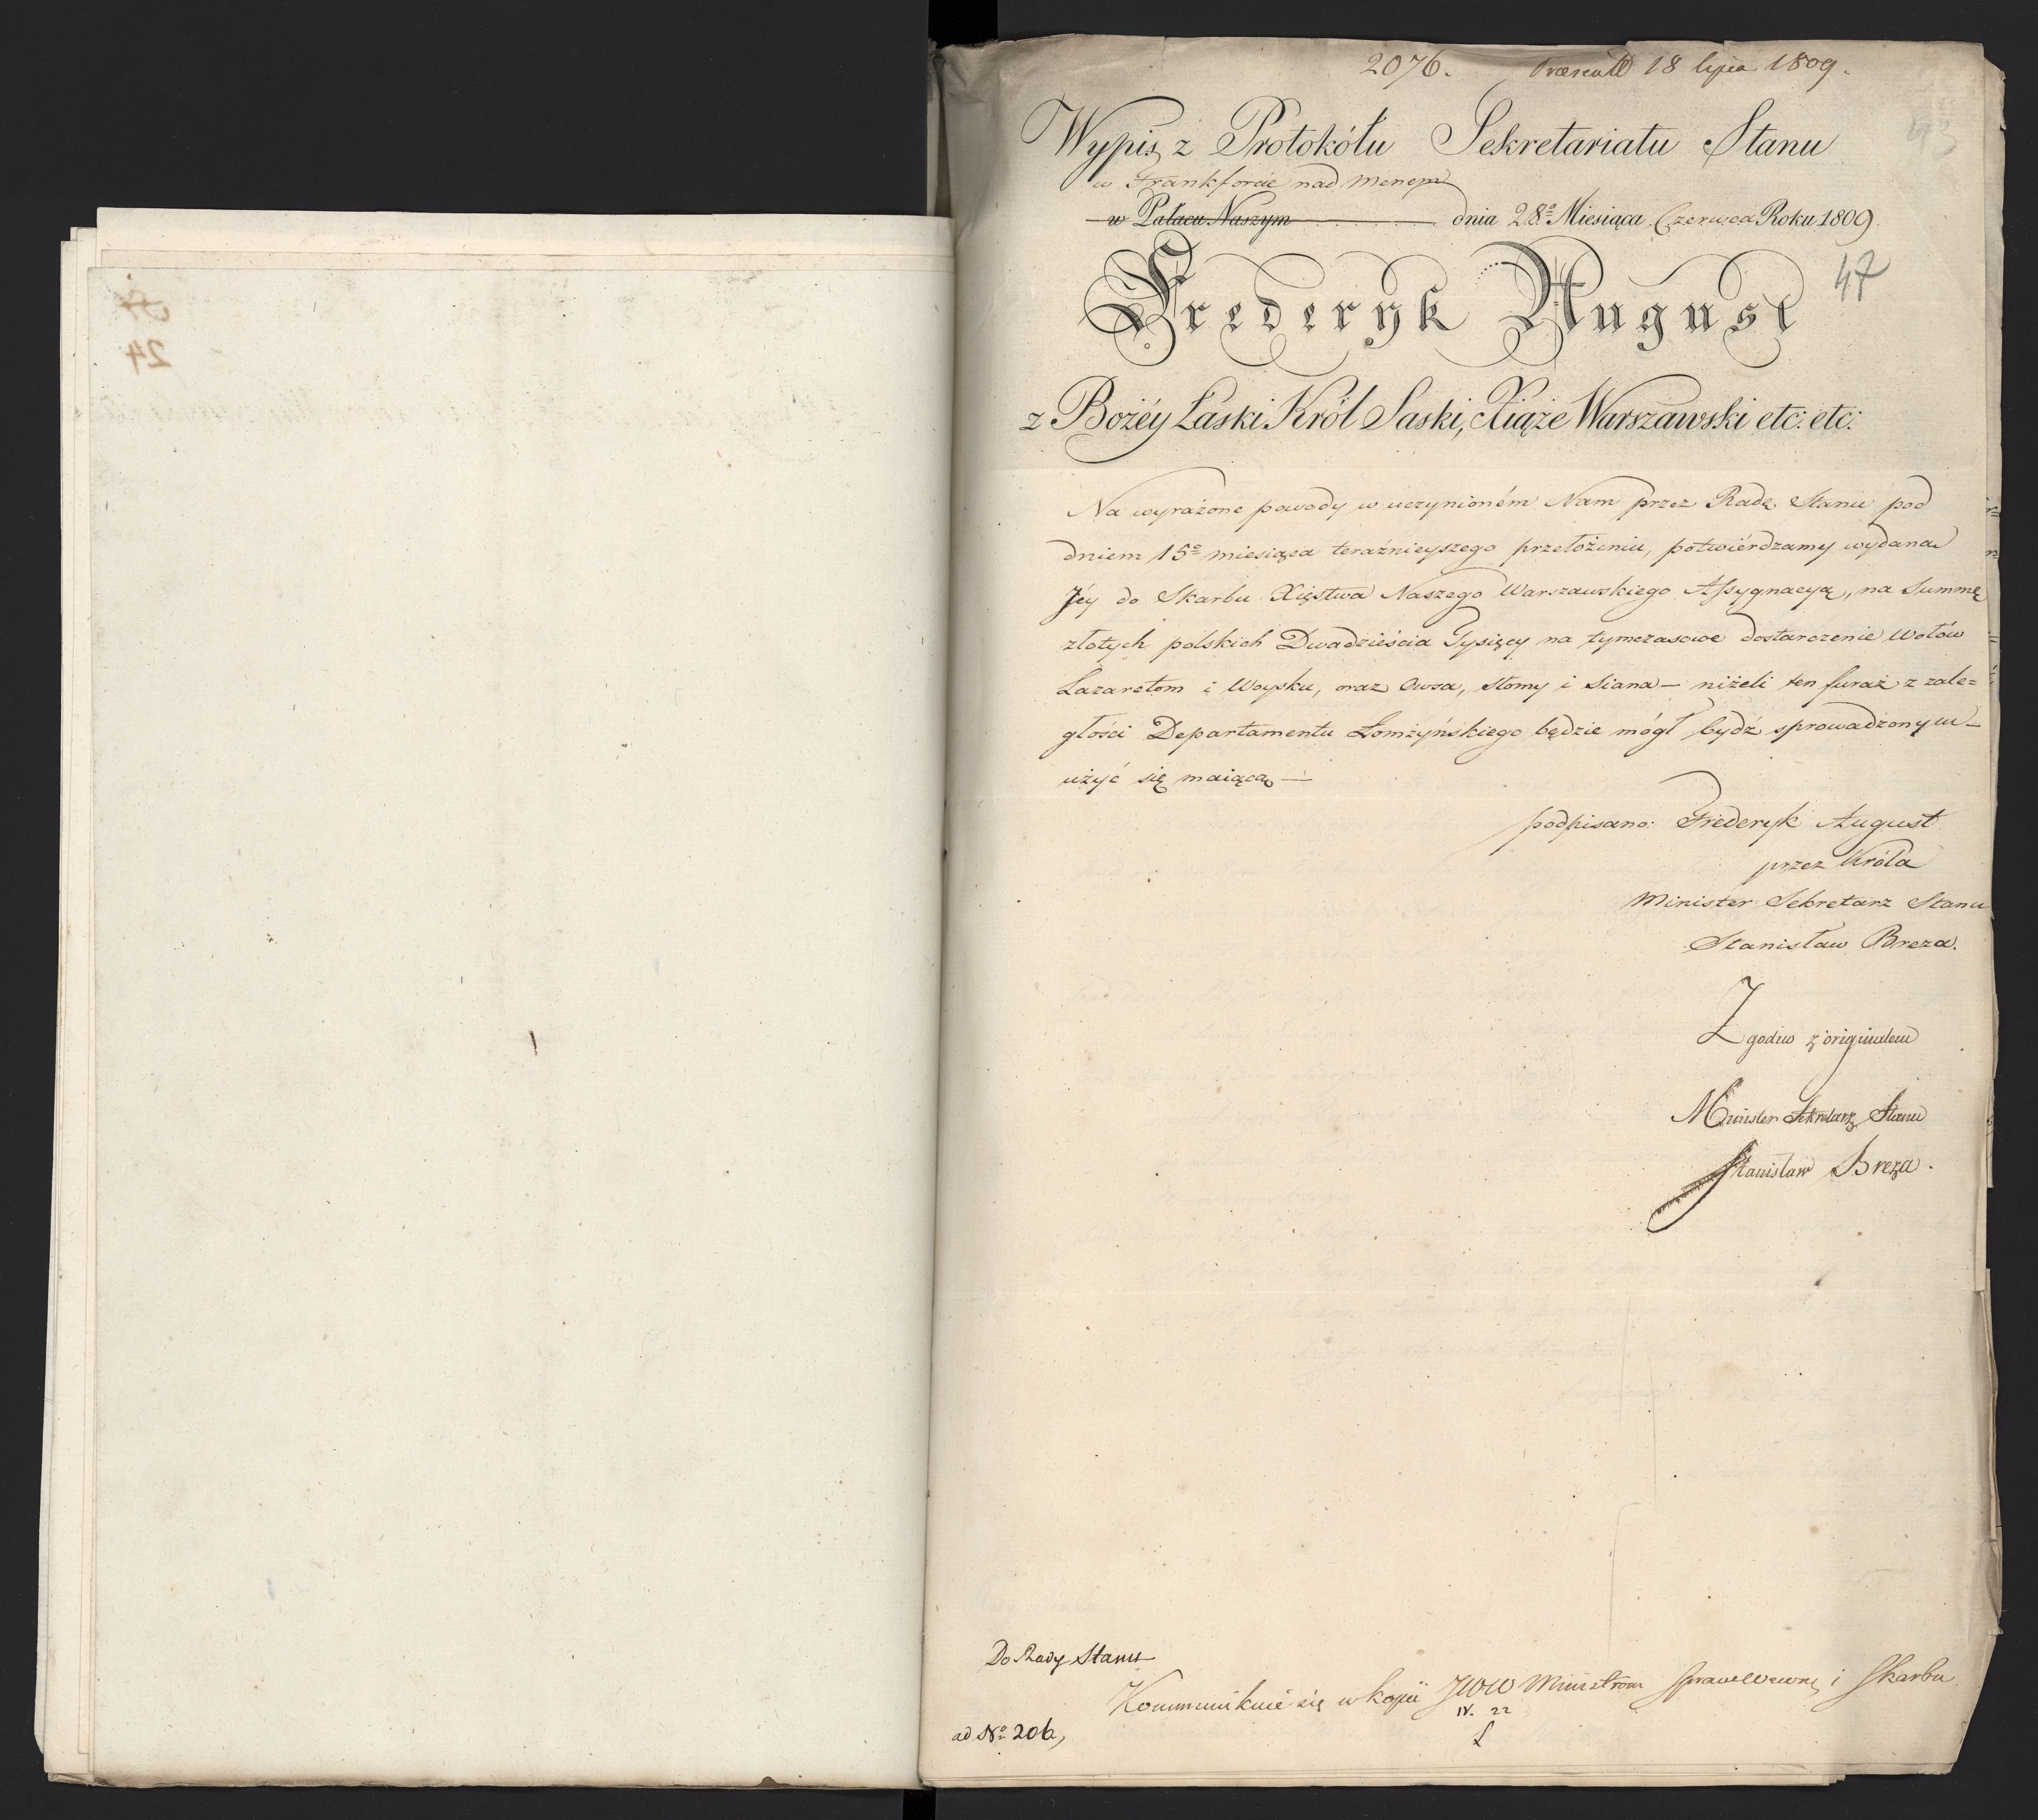 2076. Praesent 18 lipca 1809.
43
Wypis z Protokółu Sekretariatu Stanu
w Frankforcie nad Menem
w Pałacu Naszym dnia 28º Miesiąca Czerwca Roku 1809.
47
Frederyk August
z Bożéy Łaski Król Saski, Xiąże Warszawski etc: etc:
Na wyrażone powody w uczynioném Nam przez Radę Stanu pod
dniem 15º miesiąca teraźnieyszego przełożeniu, potwiérdzamy wydaną
Jéy do Skarbu Xięstwa Naszego Warszawskiego Assygnacyą, na Summę
złotych polskich Dwadzieścia Tysięcy na tymczasowe dostarczenie Wołów
Lazaretom i Woysku, oraz Owsa, słomy i siana — niżeli ten furaż z zale=
głości Departamentu Łomżyńskiego będzie mógł bydź sprowadzonym —
użyć się maiącą —
podpisano: Frederyk August
przez Króla
Minister Sekretarz Stanu
Stanisław Breza.
Zgodno z originałem
Minister Sekretarz Stanu
Stanisław Breza.
Do Rady Stanu
Kommunikuie się w kopii JWW Ministrom Spraw Wewnę i Skarbu
IV. 22
ad Nº 206,
24